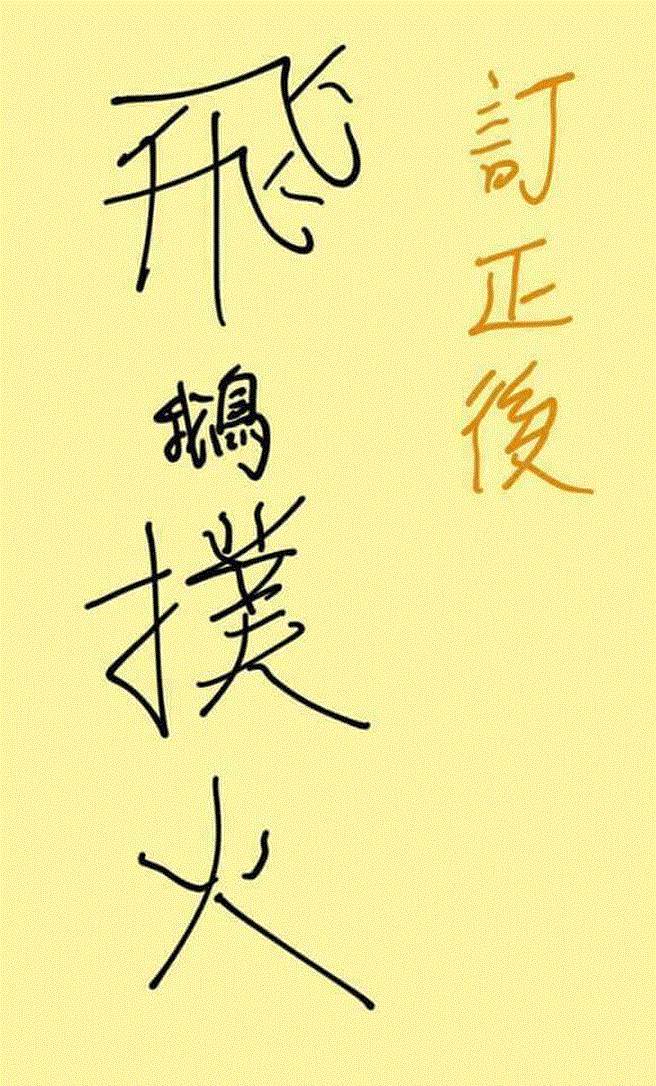 訂正後
飛鵝撲火